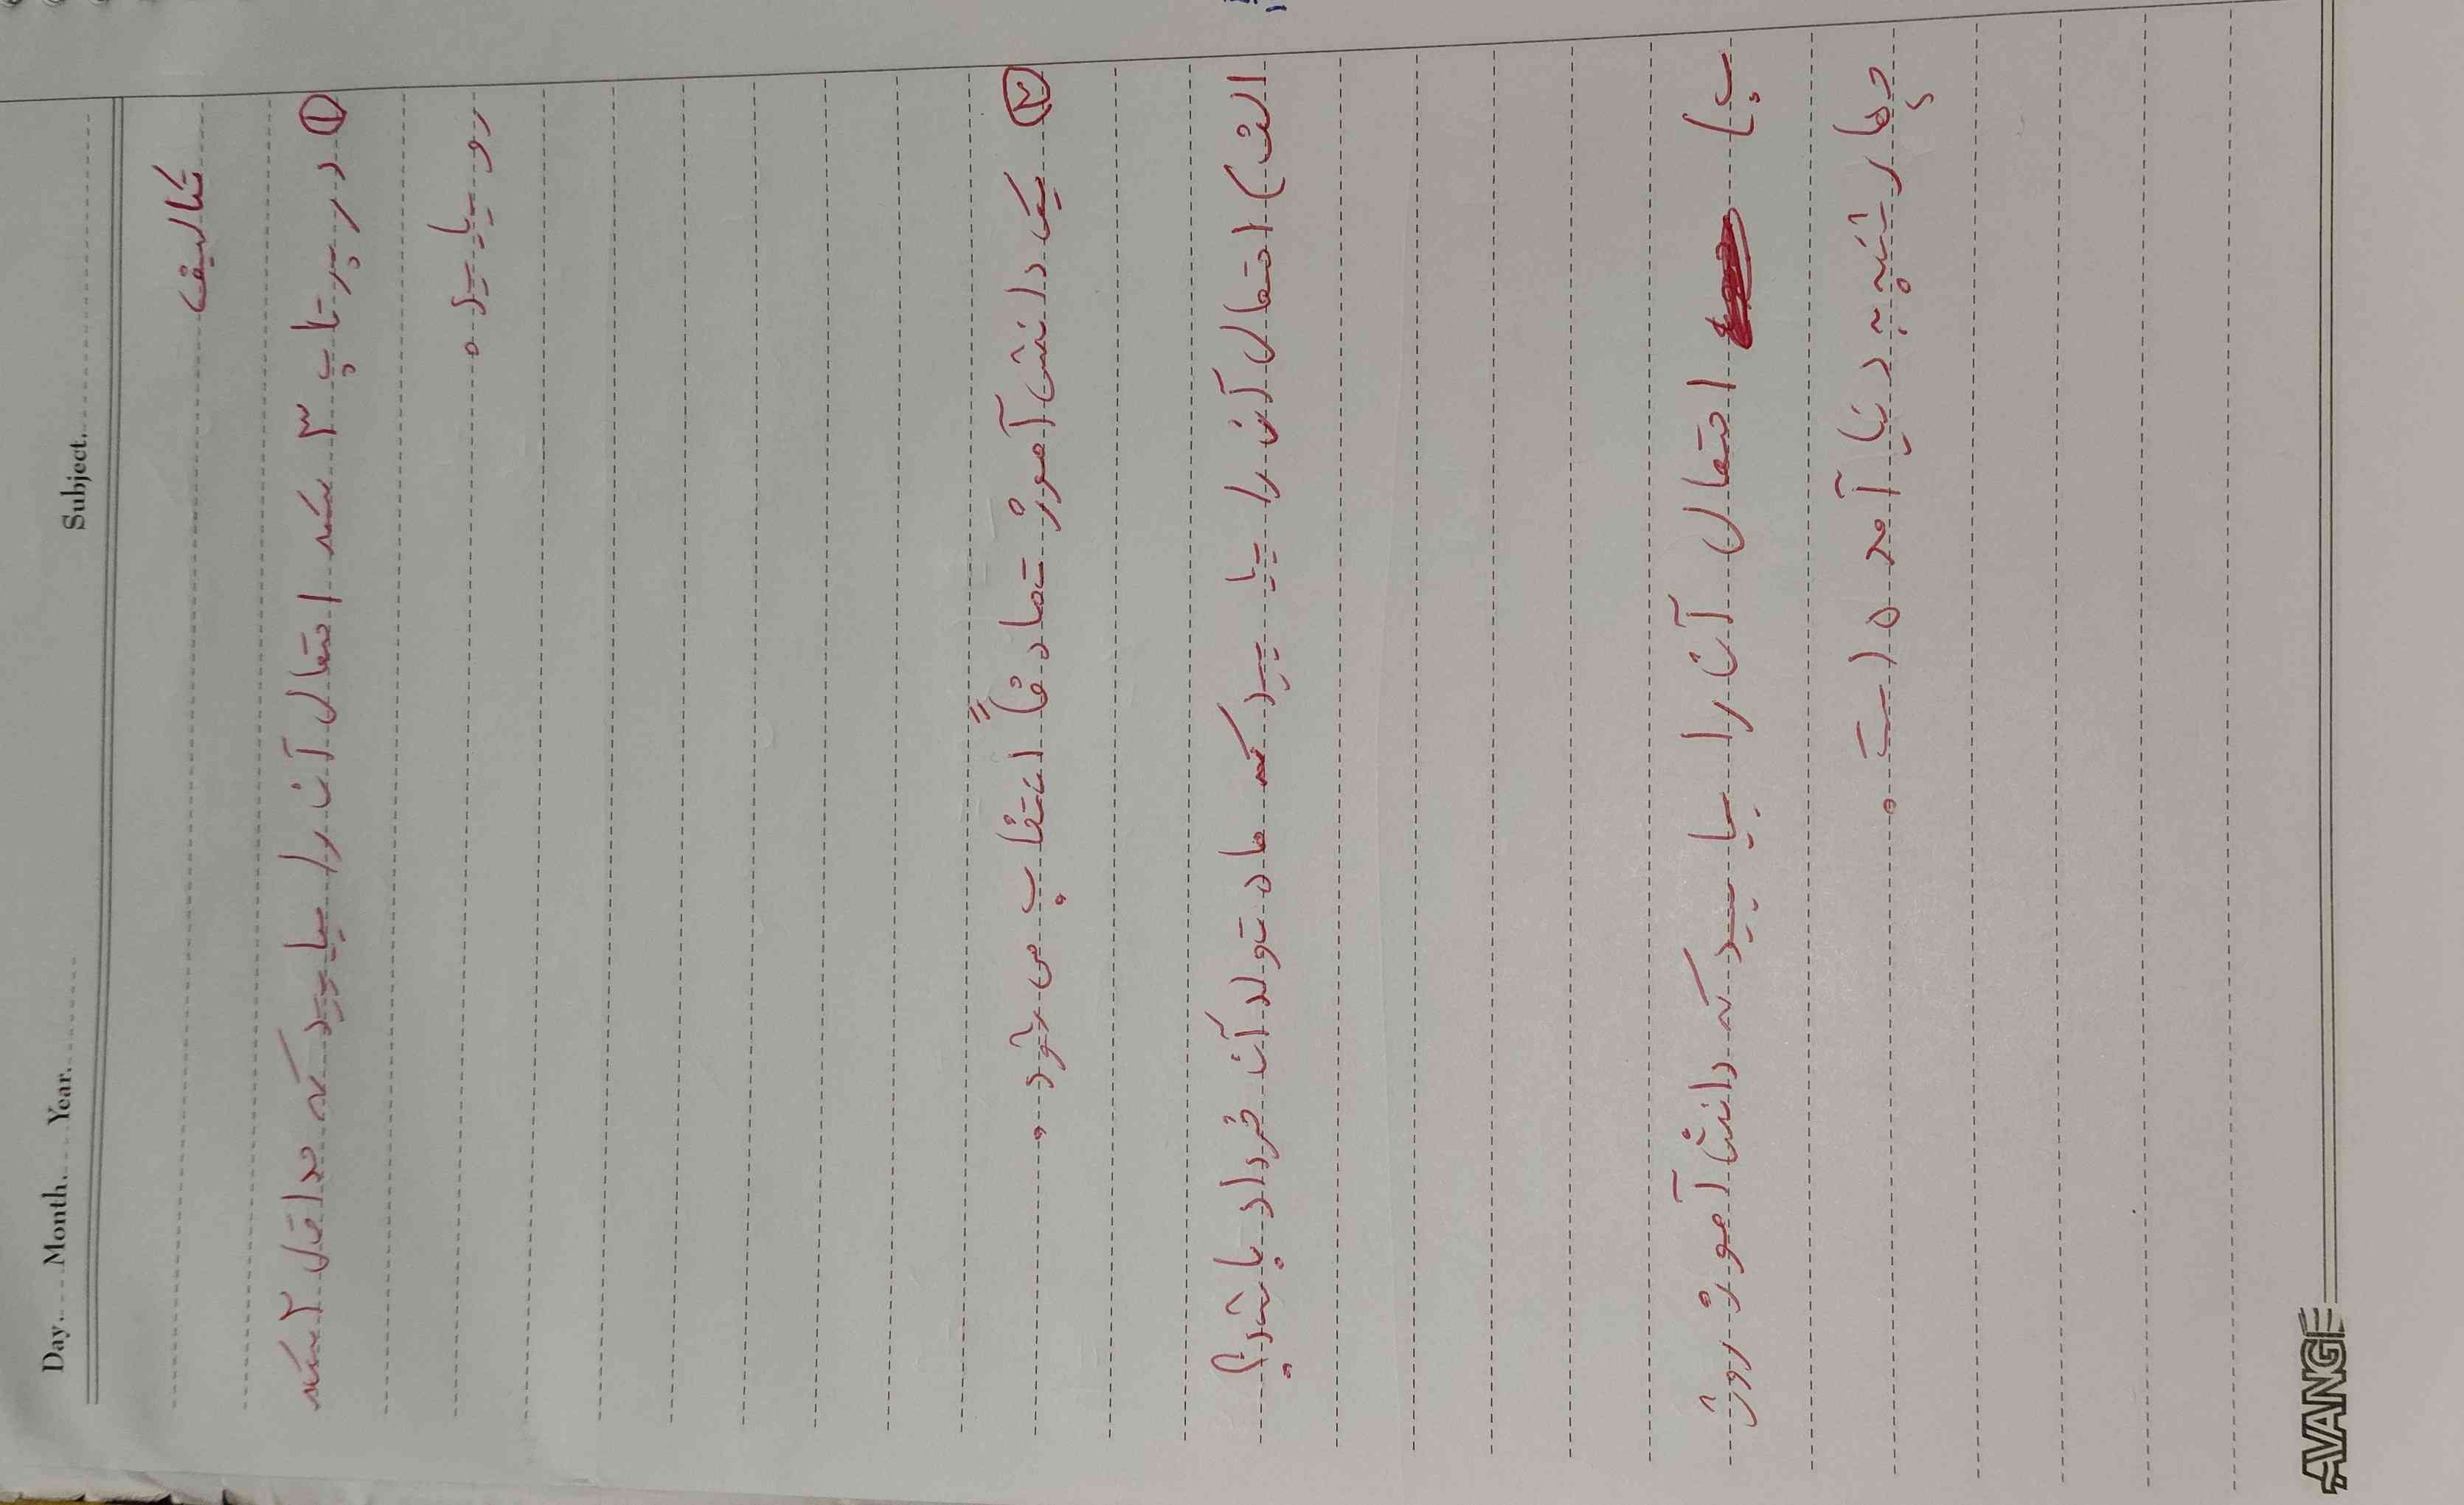 Day.... Month.... Year.... Subject....
تکالیف
① در پرتاب ۳ سکه احتمال آن را بیابید که حداقل ۲ سکه
رو بیاید.
② یک دانش آموز تصادفاً انتخاب می شود.
الف) احتمال آن را بیابید که ماه تولد آن خرداد باشد؟
ب) احتمال آن را بیابید که دانش آموز روز
چهارشنبه به دنیا آمده است.
AVANGE